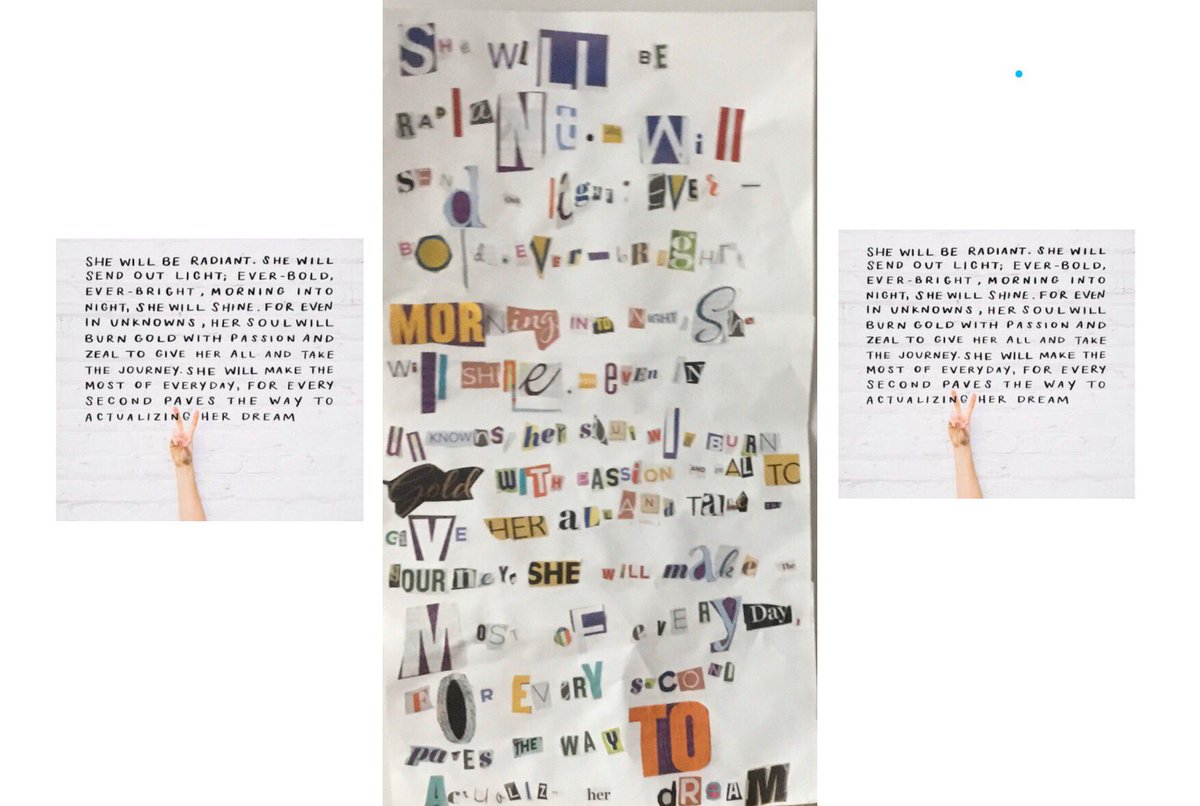 SHE WILL BE RADIANT. SHE WILL
SEND OUT LIGHT; EVER-BOLD,
EVER-BRIGHT, MORNING INTO
NIGHT, SHE WILL SHINE. FOR EVEN
IN UNKNOWNS, HER SOUL WILL
BURN GOLD WITH PASSION AND
ZEAL TO GIVE HER ALL AND TAKE
THE JOURNEY. SHE WILL MAKE THE
MOST OF EVERYDAY, FOR EVERY
SECOND PAVES THE WAY TO
ACTUALIZING HER DREAM
SHe WILL BE
RADIaNt. WiLL
SEND light: EVEr -
BOld. EVer-bRigHt
MORNing INTO NIGHT, She
WiLL SHINe. eVEn IN
UnKNOWNS, her SOUL WILL BURN
Gold WITH PASSION AND ZEAL TO
GIVE HER aLL AND TAKE
JOURNeY. SHE WILL make the
MOST OF eVERY Day,
FOR EVERY SeCOND
paVES THE WAY TO
ACtUaLIZ- her dREAM
SHE WILL BE RADIANT. SHE WILL
SEND OUT LIGHT; EVER-BOLD,
EVER-BRIGHT, MORNING INTO
NIGHT, SHE WILL SHINE. FOR EVEN
IN UNKNOWNS, HER SOUL WILL
BURN GOLD WITH PASSION AND
ZEAL TO GIVE HER ALL AND TAKE
THE JOURNEY. SHE WILL MAKE THE
MOST OF EVERYDAY, FOR EVERY
SECOND PAVES THE WAY TO
ACTUALIZING HER DREAM